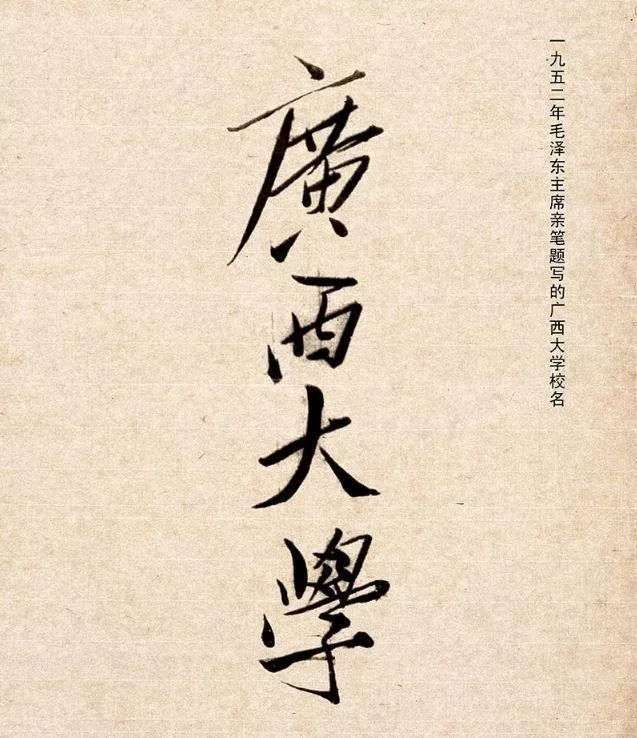 一九五二年毛泽东主席亲笔题写的广西大学校名
廣西大學